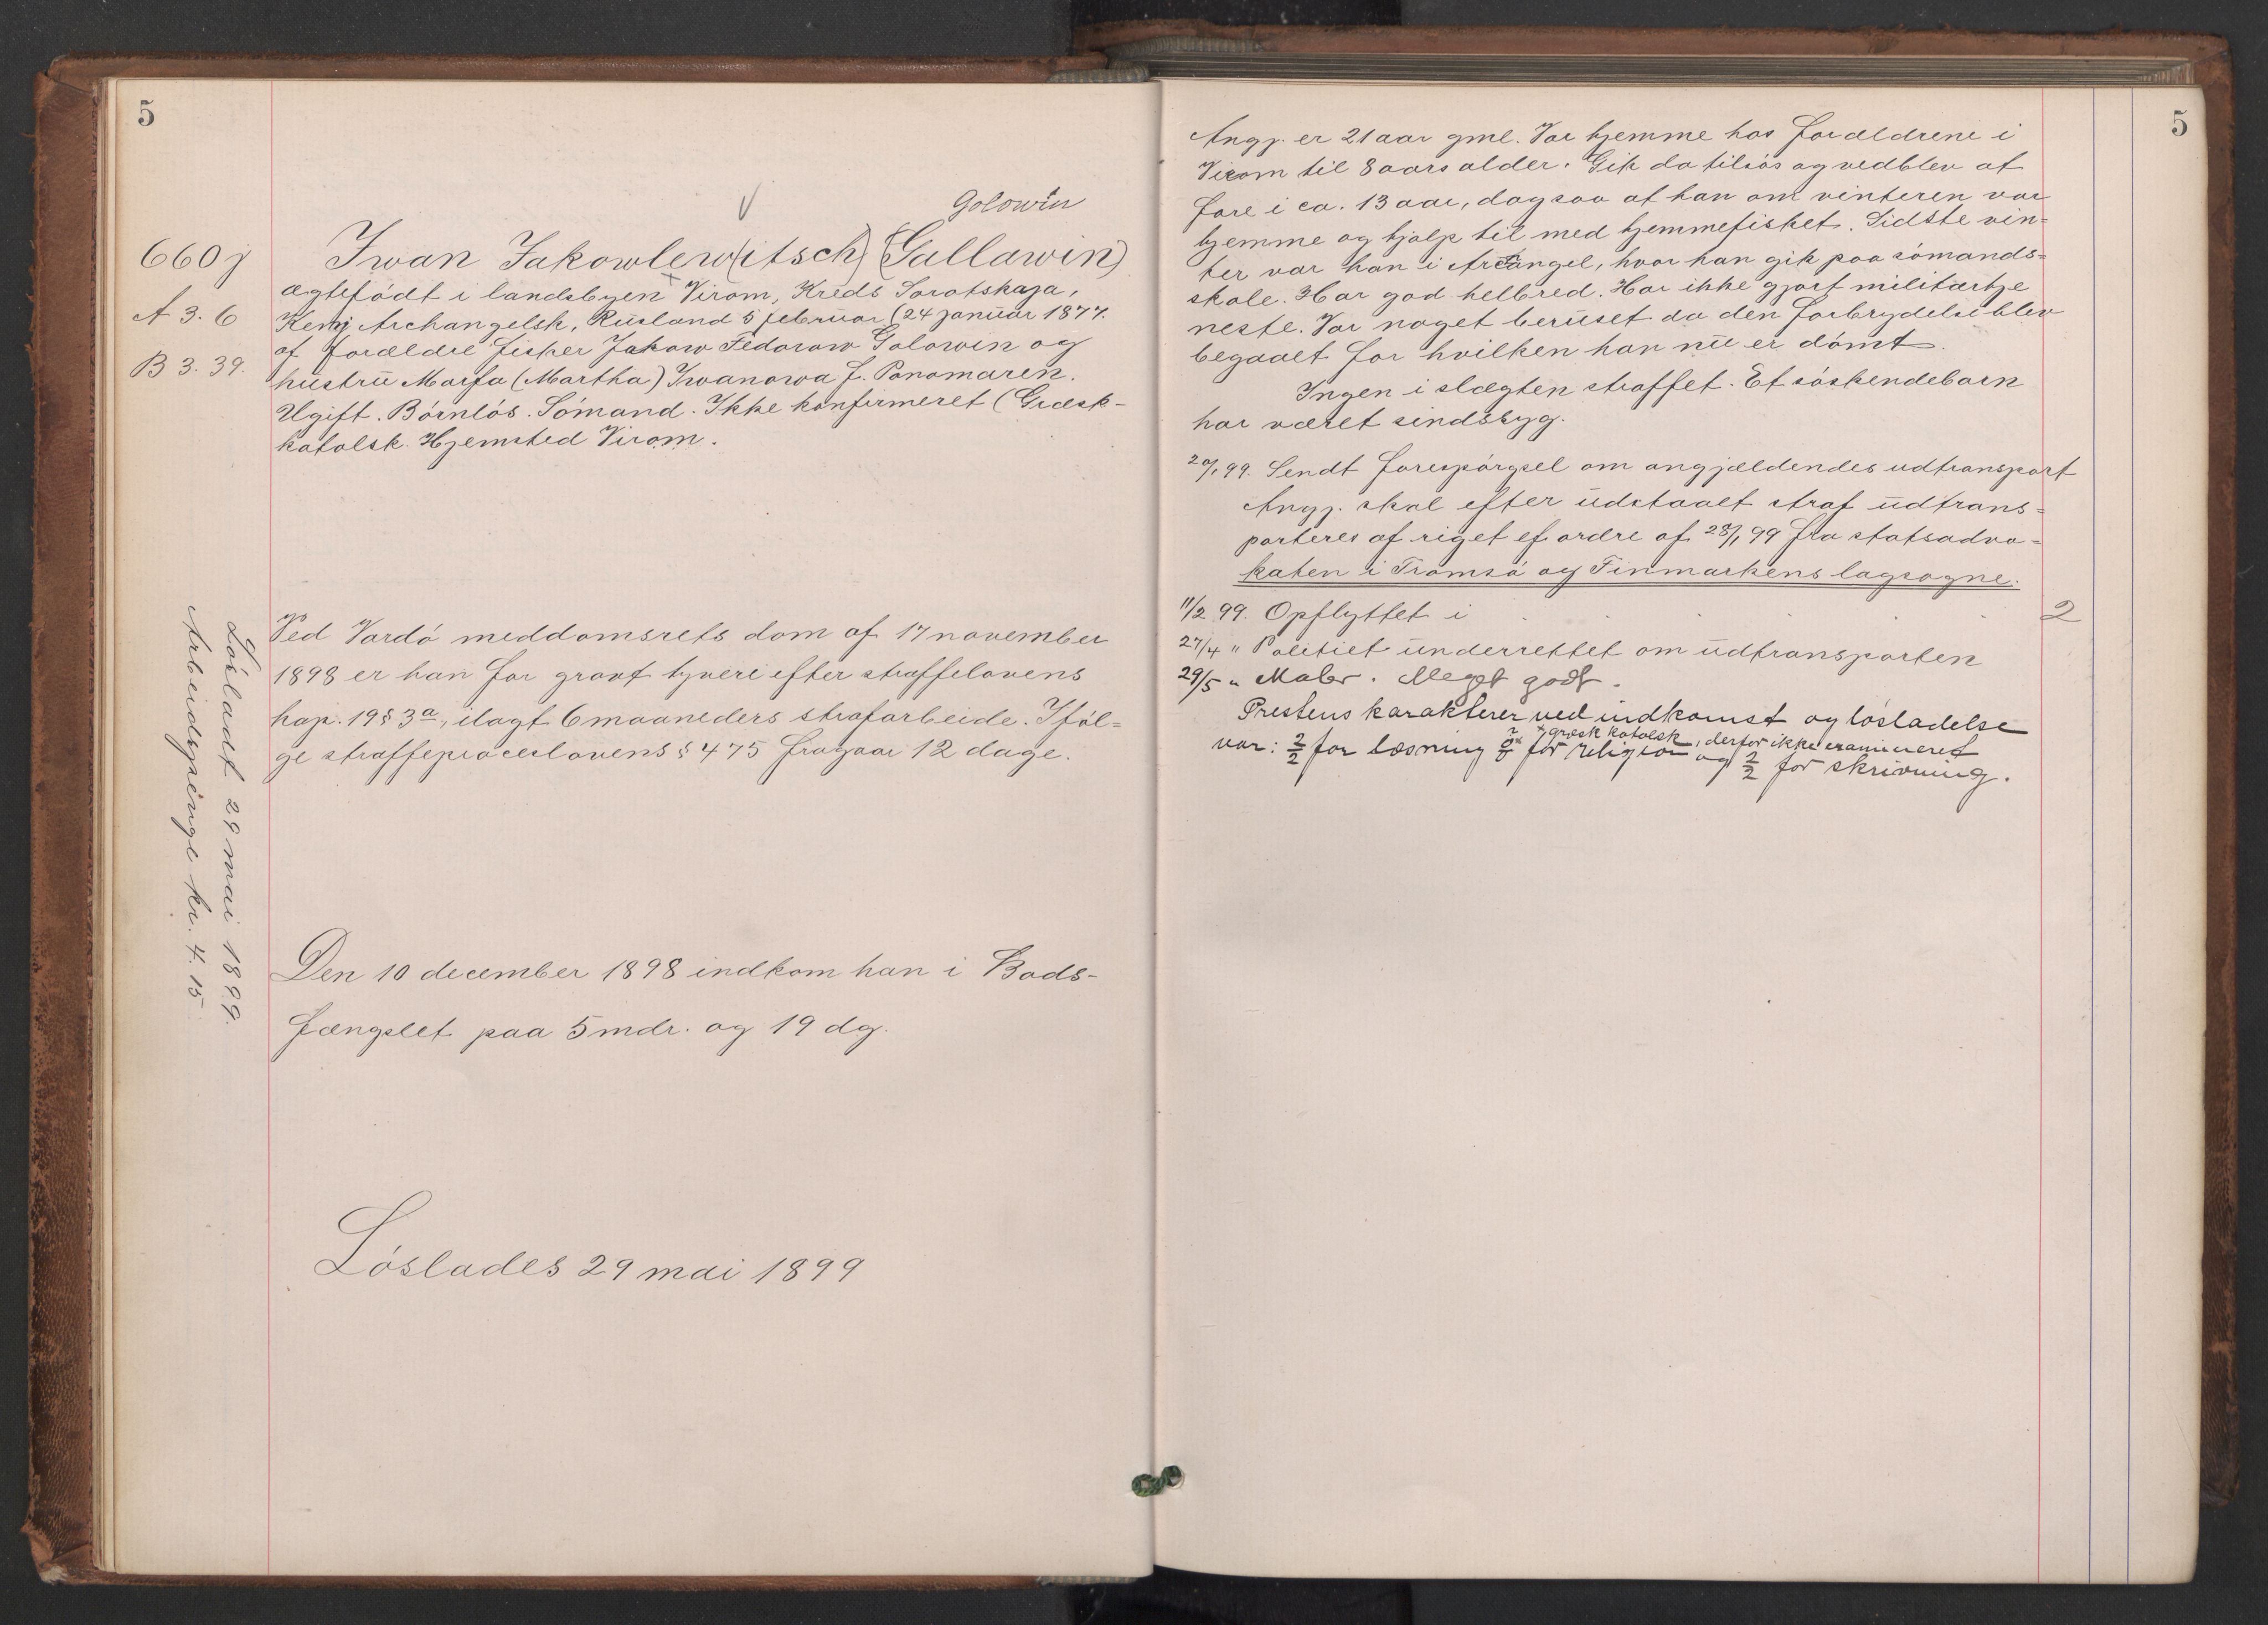 5
Golowin
660 j
Iwan Jakowlew(itsch) (Gallawin)
A 3. 6
B 3. 39.
ægtefødt i landsbyen Virom, Kreds Sorotskaja,
Kemj Archangelsk, Rusland 5 februar (24 januar 1877.
af forældre fisker Jakow Fedorow Golowin og
hustru Marfa (Martha) Iwanowa f. Ponomaren.
Ugift. Børnløs. Sømand. Ikke konfirmeret (Græsk-
katolsk. Hjemsted Virom.
Ved Vardø meddomsrets dom af 17 november
1898 er han for grovt tyveri efter straffelovens
kap. 19 § 3a, ilagt 6 maaneders strafarbeide. Iføl=
ge straffeproceslovens § 475 fragaar 12 dage.
Løsladt 29 mai 1899.
Arbeidspenge kr. 4.15
Den 10 december 1898 indkom han i Bods-
fængslet paa 5 mdr. og 19 dg.
Løslades 29 mai 1899
5
Angj. er 21 aar gml. Var hjemme hos forældrene i
Virom til 8 aars alder. Gik da tilsøs og vedblev at
fare i ca. 13 aar, dog saa at han om vinteren var
hjemme og hjalp til med hjemmefisket. Sidste vin=
ter var han i Arcangel, hvor han gik paa sømands=
skole. Har god helbred. Har ikke gjort militærtje
neste. Var noget beruset da den forbrydelse blev
begaaet for hvilken han nu er dømt.
Ingen i slægten straffet. Et søskendebarn
har været sindssyg.
20/1 99. Sendt forespørgsel om angjældendes udtransport
Angj. skal efter udstaaet straf udtrans=
porteres af riget ef. ordre af 28/1 99 fra statsadvo=
katen i Tromsø og Finmarkens lagsogne.
11/2 99. Opflyttet i . . . . 2
27/4 " Politiet underrettet om udtransporten
29/5 " Maler. Meget godt.
Prestens karakterer ved indkomst og løsladelse
x græsk katolsk, derfor ikke examineret
var: 2/2 for læsning 0/0 x for religion og 2/2 for skrivning.